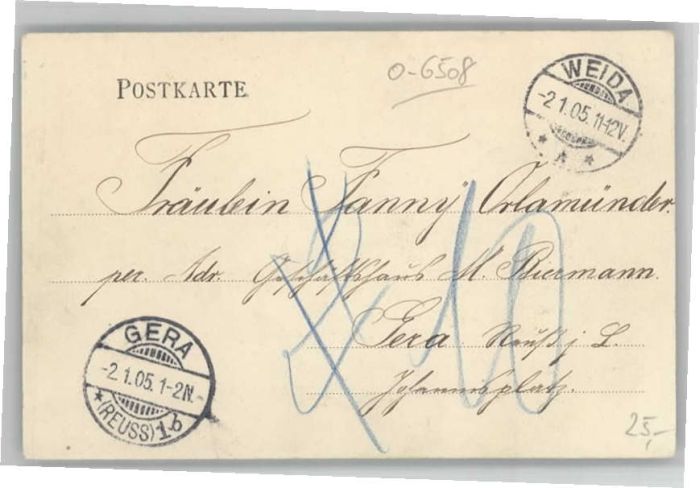 POSTKARTE
0-6508
WEIDA
-2.1.05.11-12V.
* a *
Fräulein Fanny Orlamünder.
per. Adr. Geschäftshaus M. Biermann.
Gera Reuß. j. L.
Johannisplatz.
10
GERA
-2.1.05.1-2N.-
*(REUSS)1b
25,-